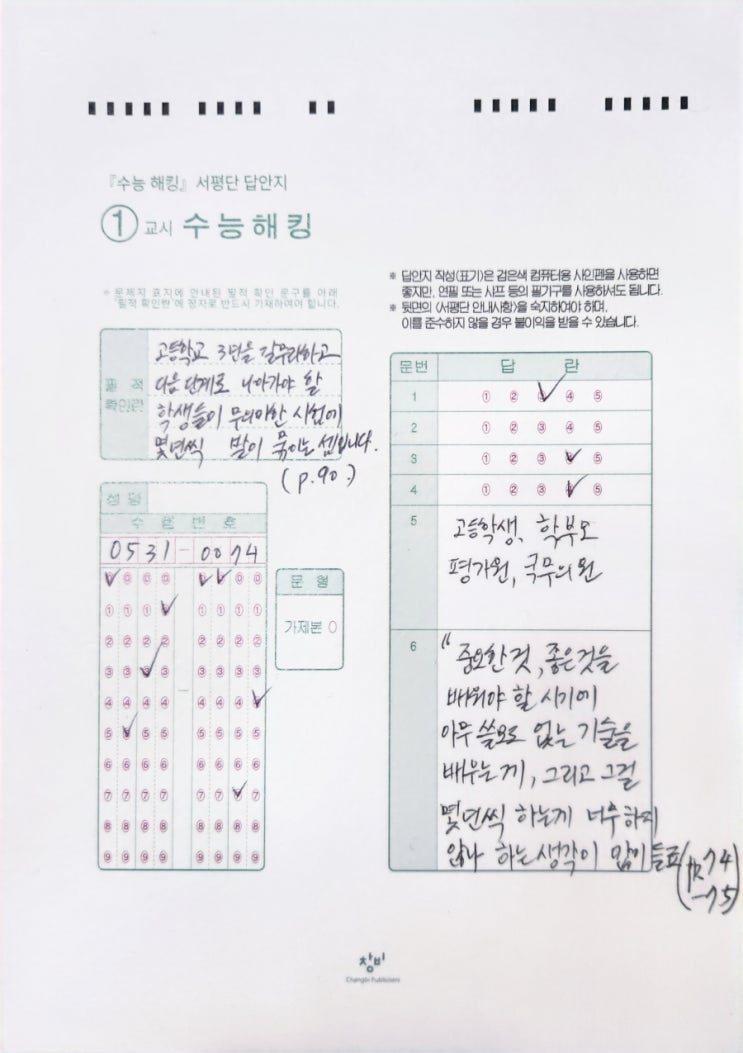 『수능 해킹』 서평단 답안지
① 교시 수능해킹
※ 문제지 표지에 안내된 필적 확인 문구를 아래
'필적 확인란'에 정자로 반드시 기재하여야 합니다.
필 적
확인란
고등학교 3년을 갈무리하고
다음 단계로 나아가야 할
학생들이 무의미한 시험에
몇년씩 발이 묶이는 셈입니다.
(p.90.)
성 명
수 험 번 호
0531-0074
⓪ ⓪ ⓪ ⓪ ⓪ ⓪ ⓪ ⓪
① ① ① ① ① ① ① ①
② ② ② ② ② ② ② ②
③ ③ ③ ③ - ③ ③ ③ ③
④ ④ ④ ④ ④ ④ ④ ④
⑤ ⑤ ⑤ ⑤ ⑤ ⑤ ⑤ ⑤
⑥ ⑥ ⑥ ⑥ ⑥ ⑥ ⑥ ⑥
⑦ ⑦ ⑦ ⑦ ⑦ ⑦ ⑦ ⑦
⑧ ⑧ ⑧ ⑧ ⑧ ⑧ ⑧ ⑧
⑨ ⑨ ⑨ ⑨ ⑨ ⑨ ⑨ ⑨
문 형
가제본 ○
※ 답안지 작성(표기)은 검은색 컴퓨터용 사인펜을 사용하면
좋지만, 연필 또는 샤프 등의 필기구를 사용하셔도 됩니다.
※ 뒷면의 〈서평단 안내사항〉을 숙지하여야 하며,
이를 준수하지 않을 경우 불이익을 받을 수 있습니다.
문번 답 란
1 ① ② ③ ④ ⑤
2 ① ② ③ ④ ⑤
3 ① ② ③ ④ ⑤
4 ① ② ③ ④ ⑤
5 고등학생, 학부모
평가원, 국무의원
6 "중요한것, 좋은것을
배워야 할 시기에
아무 쓸모도 없는 기술을
배우는게, 그리고 그걸
몇년씩 하는게 너무하지
않나 하는 생각이 많이 들죠
74
-75)
창비
Changbi Publishers